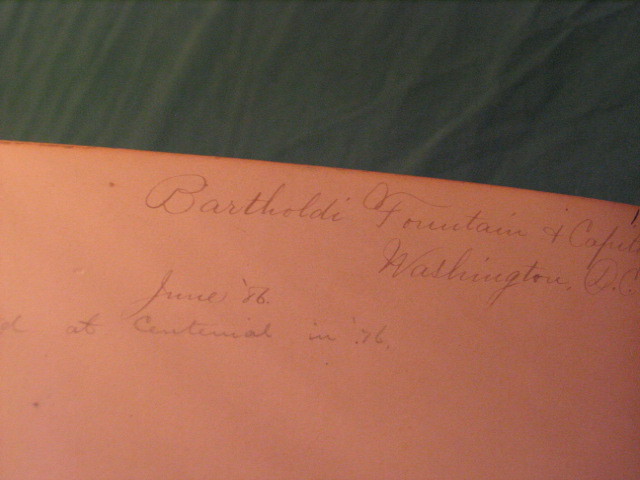 Bartholdi Fountain & Capit
Washington, D.C.
June '86.
d at Centenial in '76.